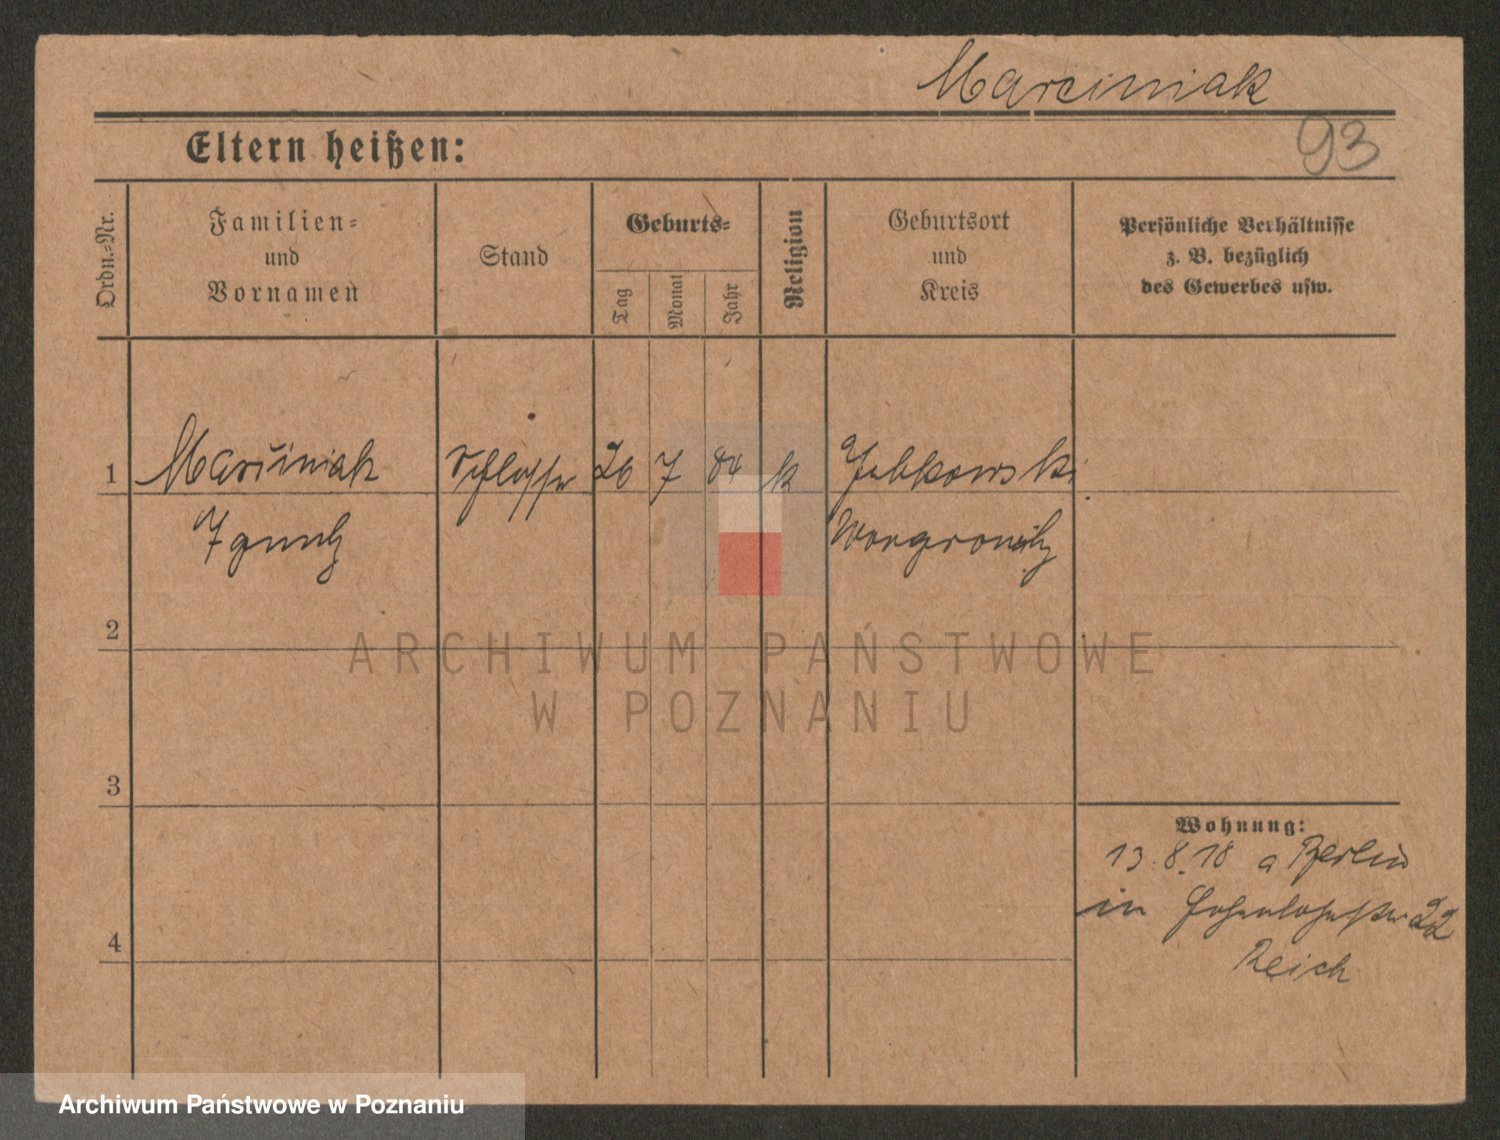 Marciniak
93
Eltern heißen:
Ordn.=Nr.
Familien=
und
Vornamen
Stand
Geburts=
Tag
Monat
Jahr
Religion
Geburtsort
und
Kreis
Persönliche Verhältnisse
z. B. bezüglich
des Gewerbes usw.
1 Marciniak Schlosser 26 7 84 k
Ignatz Wongrowitz
2
3
4
Wohnung:
13.8.18 a Berlin
in Hohenlohestr 22
Reich
ARCHIWUM PAŃSTWOWE
W POZNANIU
Archiwum Państwowe w Poznaniu